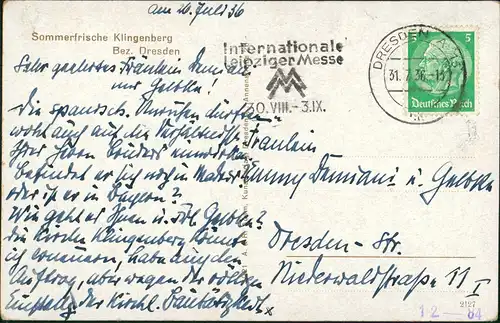 am 26. Juli 36
Sommerfrische Klingenberg
Bez. Dresden
Sehr geehrtes Fräulein Damiani
und Gelbke!
Die spanisch. Unruhen dürften
wohl auch auf die
Ihres Herrn Bruders einwirken
befindet er sich noch in Madrid
oder ist er in Bayern?
Wie geht es Ihnen u. Frl. Gelbke?
die Kirche Klingenberg könnt
ich erneuern, habe auch den
Auftrag, aber wegen der völligen
der Kirchl. Bautätigkeit
Internationale
Leipziger Messe
30.VIII.-3.IX.
DRESDEN
31.7.36
5
5
Deutsches Reich
Fräulein
Fanny Damiani u. Gelbke
Dresden-Str.
Niederwaldstraße 11 I
2127
12-84